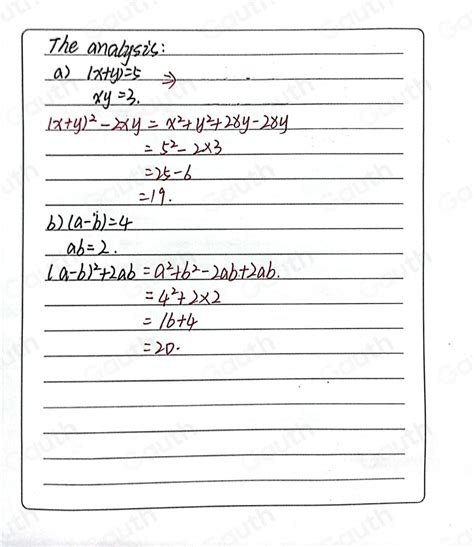 The analysis:
a) (x+y)=5 ⇒
xy=3.
(x+y)²-2xy = x²+y²+2xy-2xy
= 5²-2×3
=25-6
=19.
b) (a-b)=4
ab=2.
(a-b)²+2ab = a²+b²-2ab+2ab.
= 4²+2×2
= 16+4
=20.
Gauth